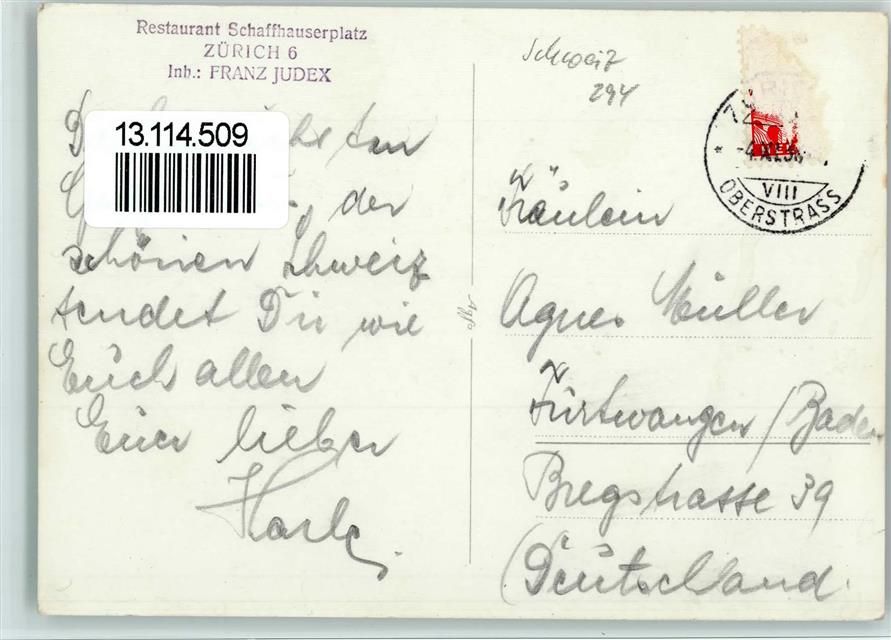 Restaurant Schaffhauserplatz
ZÜRICH 6
Inh.: FRANZ JUDEX
Schweiz
294
13.114.509
der
schönen Schweiz
sendet Dir wie
Euch allen
Euer lieber
Karle
VIII
OBERSTRASS
Fräulein
Agnes Müller
Furtwangen / Baden
Bregstrasse 39
(Deutschland.